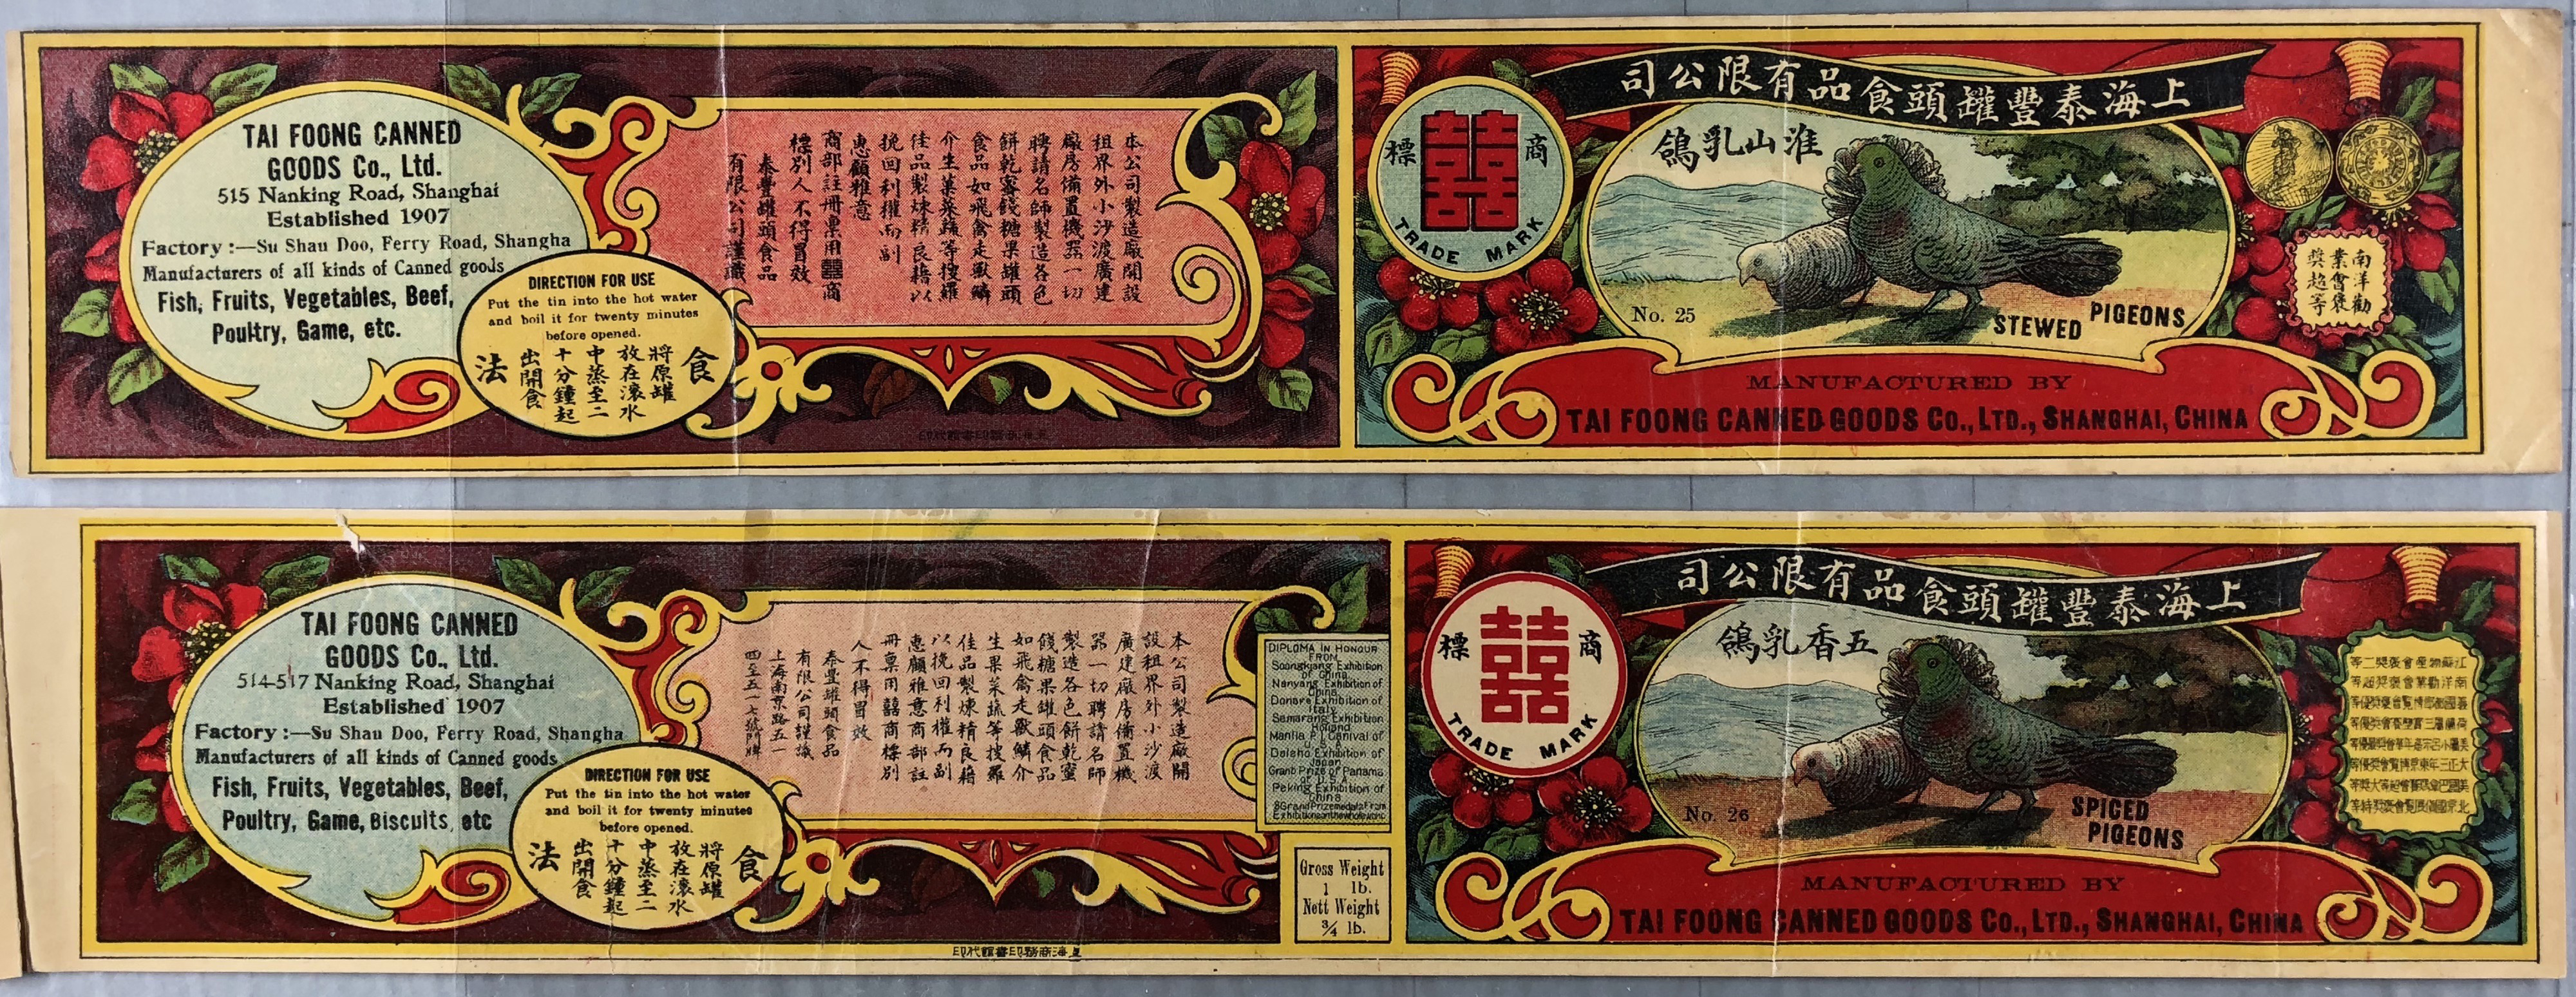 TAI FOONG CANNED
GOODS Co., Ltd.
515 Nanking Road, Shanghai
Established 1907
Factory :—Su Shau Doo, Ferry Road, Shangha
Manufacturers of all kinds of Canned goods
Fish, Fruits, Vegetables, Beef,
Poultry, Game, etc.
DIRECTION FOR USE
Put the tin into the hot water
and boil it for twenty minutes
before opened.
食
將原罐
放在滚水
中蒸至二
十分鐘起
出開食
法
本公司製造廠開設
租界外小沙渡廣建
廠房備置機器一切
聘請名師製造各色
餅乾蜜餞糖果罐頭
食品如飛禽走獸鱗
介生菓菜蔬等搜羅
佳品製煉精良藉以
挽回利權而副
惠顧雅意
商部註冊禀用囍商
標別人不得冒效
泰豐罐頭食品
有限公司謹識
上海泰豐罐頭食品有限公司
商標
囍
TRADE MARK
淮山乳鴿
No. 25
STEWED PIGEONS
南洋勸
業會褒
奬超等
MANUFACTURED BY
TAI FOONG CANNED GOODS Co., LTD., SHANGHAI, CHINA
TAI FOONG CANNED
GOODS Co., Ltd.
514-517 Nanking Road, Shanghai
Established 1907
Factory :—Su Shau Doo, Ferry Road, Shangha
Manufacturers of all kinds of Canned goods
Fish, Fruits, Vegetables, Beef,
Poultry, Game, Biscuits, etc
DIRECTION FOR USE
Put the tin into the hot water
and boil it for twenty minutes
before opened.
食
將原罐
放在滚水
中蒸至二
十分鐘起
出開食
法
本公司製造廠開
設租界外小沙渡
廣建廠房備置機
器一切聘請名師
製造各色餅乾蜜
餞糖果罐頭食品
如飛禽走獸鱗介
生果菜蔬等搜羅
佳品製煉精良藉
以挽回利權而副
惠顧雅意商部註
冊禀用囍商標別
人不得冒效
泰豐罐頭食品
有限公司謹識
上海南京路五一
四至五一七號門牌
DIPLOMA IN HONOUR
FROM
Soongkiang Exhibition
of China
Nanyang Exhibition of
China
Donave Exhibition of
Italy
Samarang Exhibition
Holland
Manila P.I. Canival of
U.S.A.
Daisho Exhibition of
Japan
Grand Prize of Panama
of U.S.A.
Peking Exhibition of
China
Gross Weight
1 lb.
Nett Weight
3/4 lb.
上海商務印書館代印
上海泰豐罐頭食品有限公司
商標
囍
TRADE MARK
五香乳鴿
No. 26
SPICED
PIGEONS
南洋勸業會褒奬超等
MANUFACTURED BY
TAI FOONG CANNED GOODS Co., LTD., SHANGHAI, CHINA